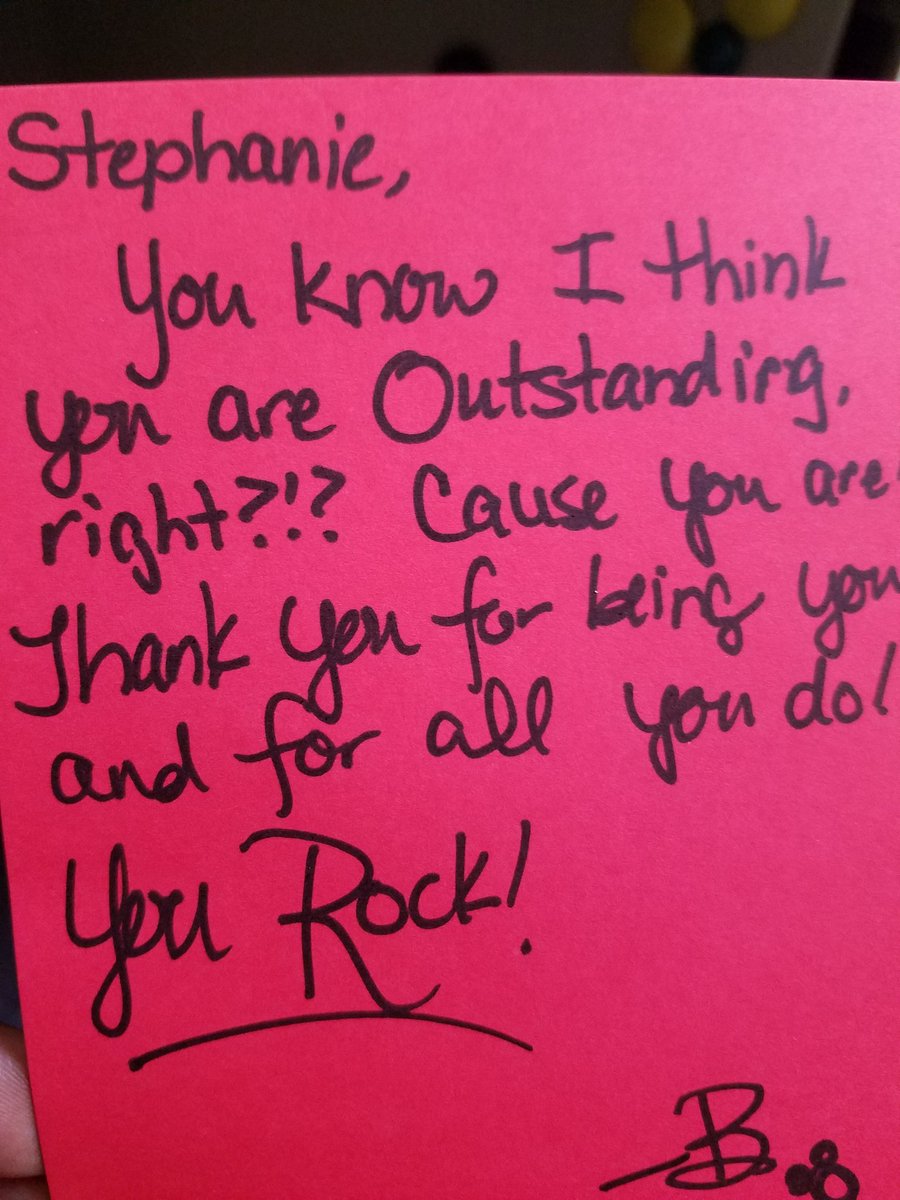 Stephanie,
You know I think
you are Outstanding,
right?!? Cause you are
Thank you for being you
and for all you do!
You Rock!
B